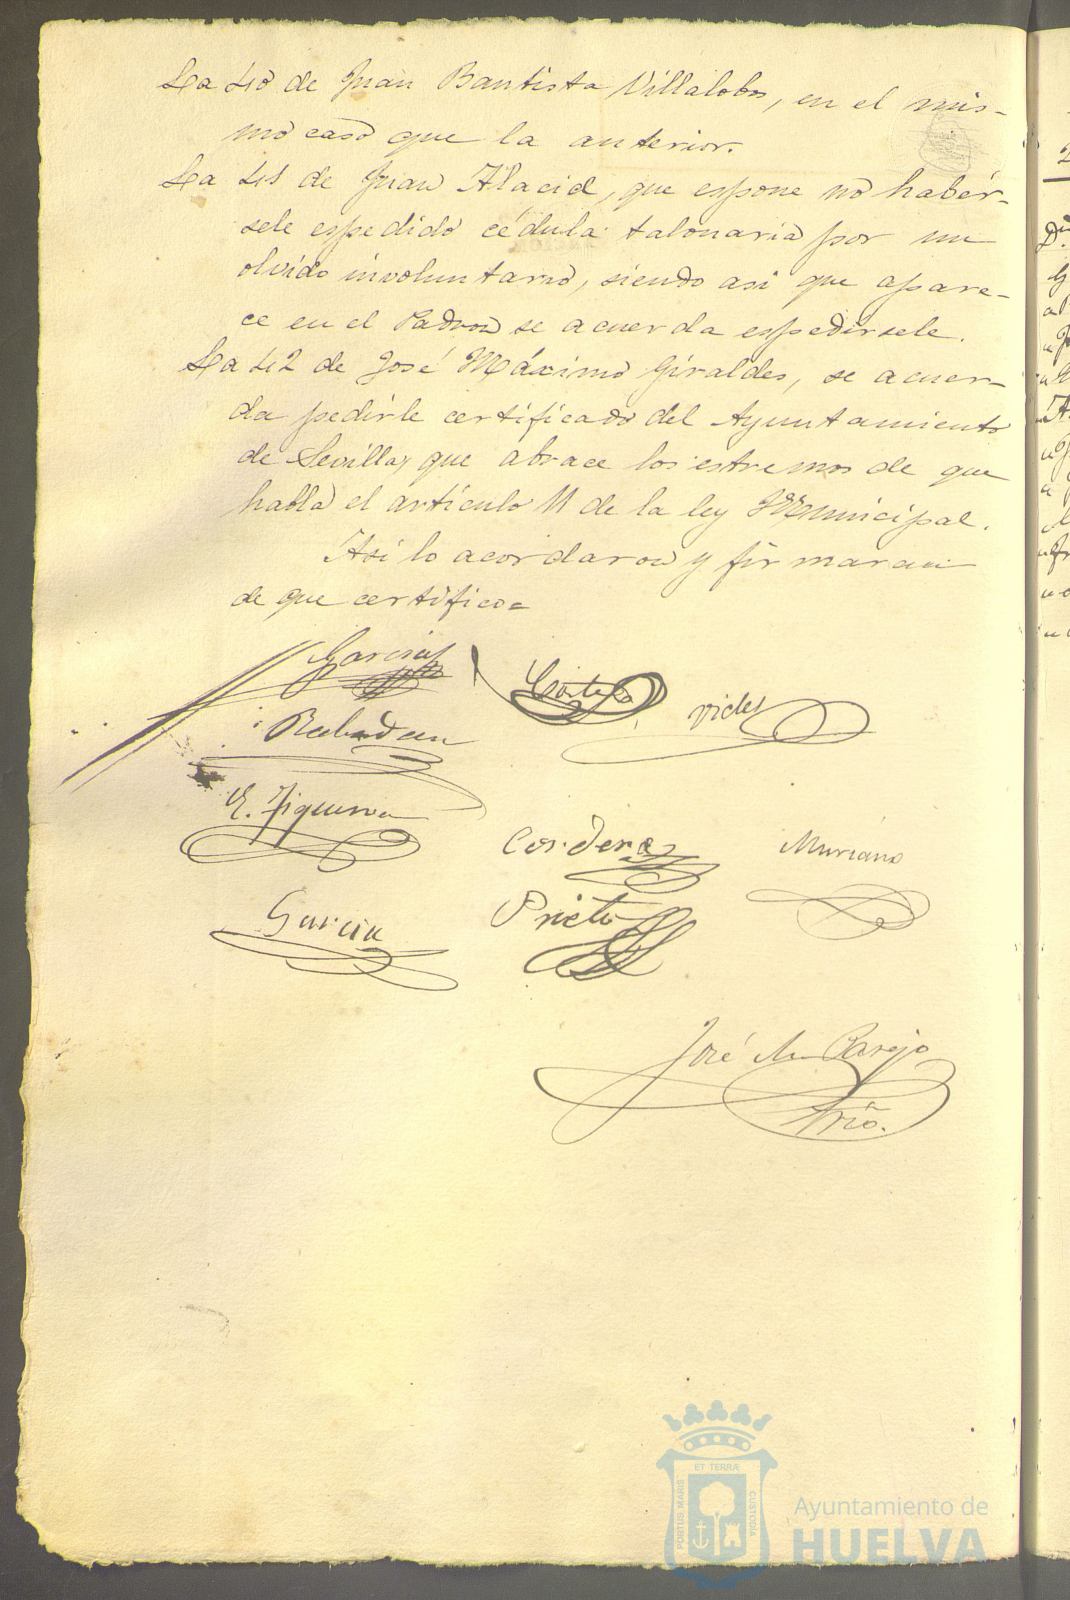 La 40 de Juan Bautista Villalobos, en el mis-
mo caso que la anterior.
La 41 de Juan Alacid, que espone no habér-
sele espedido cédula talonaria por un
olvido involuntario, siendo asi que apare-
ce en el Padron se acuerda espedirsele.
La 42 de José Máximo Giraldes, se acuer-
da pedirle certificado del Ayuntamiento
de Sevilla, que abrace los estremos de que
habla el artículo 11 de la ley Municipal.
Asi lo acordaron y firmaran
de que certifico=
Garcia
Cortes
Vides
Rabadan
E. Figueroa
Cordero
Muriano
Garcia
Prieto
José M. Parejo
Srio.
ET TERRÆ
PORTUS MARIS
CUSTODIA
Ayuntamiento de
HUELVA